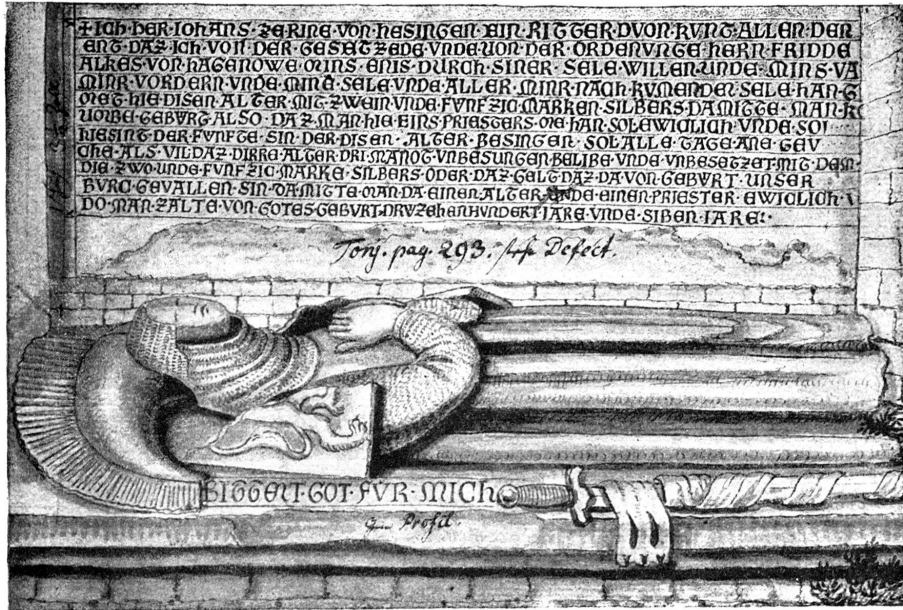 +ICH·BER·IOHANS·ZERINE·VON·HESINGEN·EIN·RITTER·DVON·KVNT·ALLEN·DEN
ENT·DAZ·ICH·VON·DER·GESETZEDE·VNDE·VON·DER·ORDENVNGE·HERN·FRIDDE
ALKES·VON·HAGENOWE·MINS·ENIS·DURCH·SINER·SELE·WILLEN·UNDE·MINS·VA
MINR·VORDERN·VNDE·MINE·SELE·VNDE·ALLER·MINR·NACH·KVMENDEN·SELE·HAN·G
HIE·DISEN·ALTER·MIT·ZWEIN·VNDE·FVNFZIC·MARKEN·SILBERS·DAMITTE·MAN·K
GEBVRT·ALSO·DAZ·MAN·HIE·EINS·PRIESTERS·ME·HAN·SOL·EWICLICH·VNDE·SOL
DER·FVNFTE·SIN·DER·DISEN·ALTER·BESINGEN·SOL·ALLE·TAGE·ANE·GEV
CHE·ALS·VIL·DAZ·DIRRE·ALTER·DRI·MANOT·VNBESUNGEN·BELIBE·VNDE·VNBESETZET·MIT·DEM
DIE·ZWO·UNDE·FVNFZIC·MARKE·SILBERS·ODER·DAZ·GELT·DAZ·DA·VON·GEBVRT·UNSER
BVRC·GEVALLEN·SIN·DA·MITTE·MAN·DA·EINEN·ALTER·UNDE·EINEN·PRIESTER·EWICLICH·
DO·MAN·ZALTE·VON·GOTES·GEBVRT·DRVZEHENHVNDERT·IARE·VNDE·SIBEN·IARE:
pag. 293. Defect.
BIGGENT·GOT·FVR·MICH
Profil.